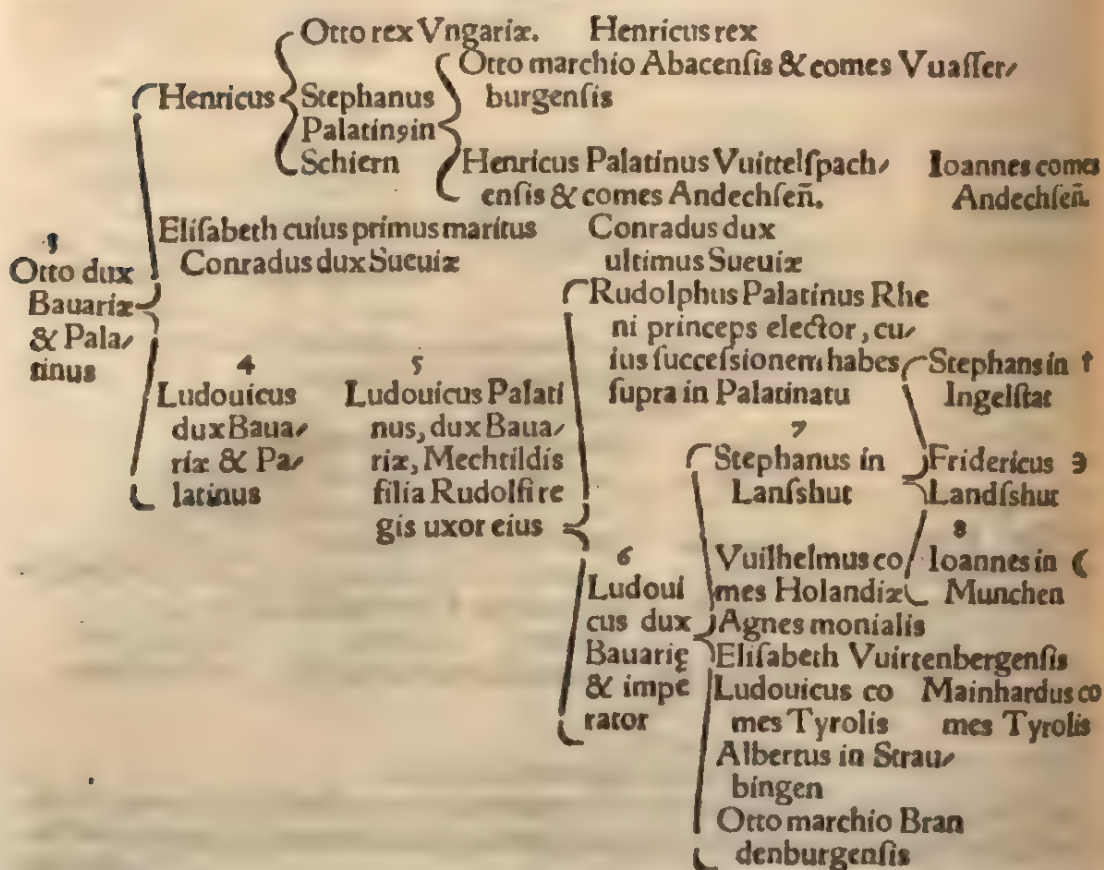 Otto rex Vngariæ. Henricus rex
Otto marchio Abacenſis & comes Vuaſſer⸗
burgenſis
Henricus
Stephanus
Palatinꝰ in
Schiern
Henricus Palatinus Vuittelſpach⸗
enſis & comes Andechſen̄.
Ioannes comes
Andechſen̄.
Eliſabeth cuius primus maritus
Conradus dux Sueuiæ
Conradus dux
ultimus Sueuiæ
1
Otto dux
Bauariæ
& Pala⸗
tinus
4
Ludouicus
dux Baua⸗
riæ & Pa⸗
latinus
5
Ludouicus Palati
nus, dux Baua⸗
riæ, Mechtildis
filia Rudolfi re
gis uxor eius
Rudolphus Palatinus Rhe
ni princeps elector, cu⸗
ius ſucceſsionem habes
ſupra in Palatinatu
6
Ludoui
cus dux
Bauarię
& impe
rator
7
Stephanus in
Lanſshut
Stephans in †
Ingelſtat
Fridericus
Landſshut
8
Ioannes in
Munchen
Vuilhelmus co
mes Holandiæ
Agnes monialis
Eliſabeth Vuirtenbergenſis
Ludouicus co
mes Tyrolis
Mainhardus co
mes Tyrolis
Albertus in Strau⸗
bingen
Otto marchio Bran
denburgenſis